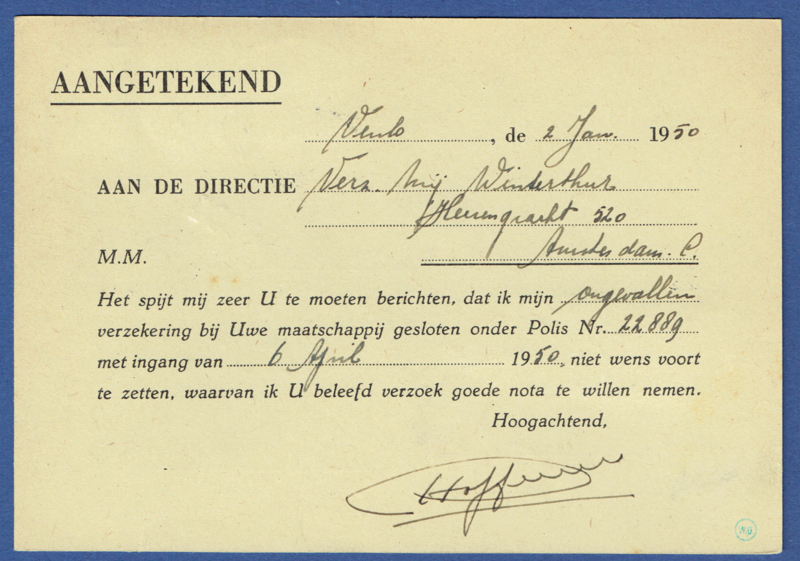 AANGETEKEND
Venlo, de 2 Jan. 1950
AAN DE DIRECTIE Verz. Mij Winterthur
Herengracht 520
M.M. Amsterdam. C.
Het spijt mij zeer U te moeten berichten, dat ik mijn ongevallen
verzekering bij Uwe maatschappij gesloten onder Polis Nr. 22889
met ingang van 6 April 1950, niet wens voort
te zetten, waarvan ik U beleefd verzoek goede nota te willen nemen.
Hoogachtend,